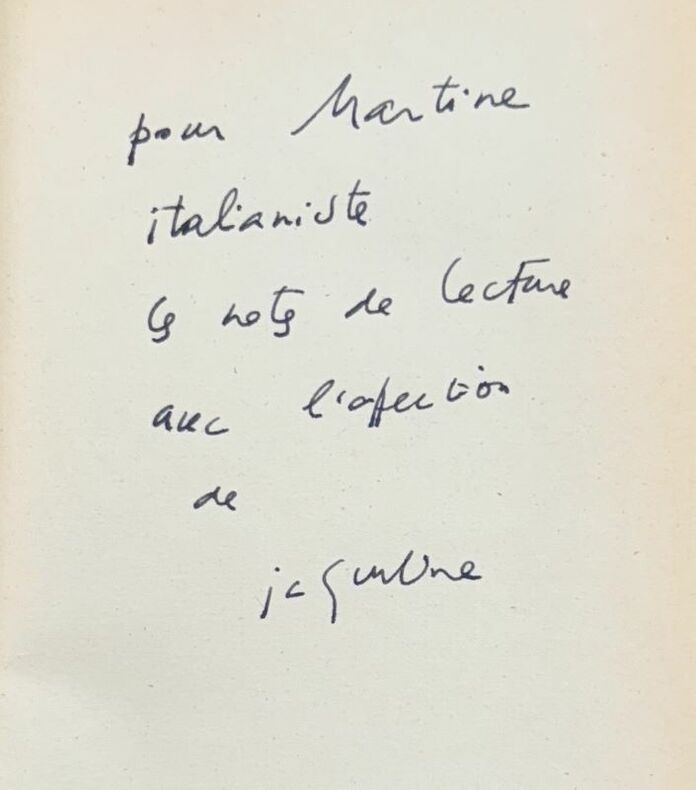 pour Martine
italianiste
ces notes de lecture
avec l'affection
de
jacqueline